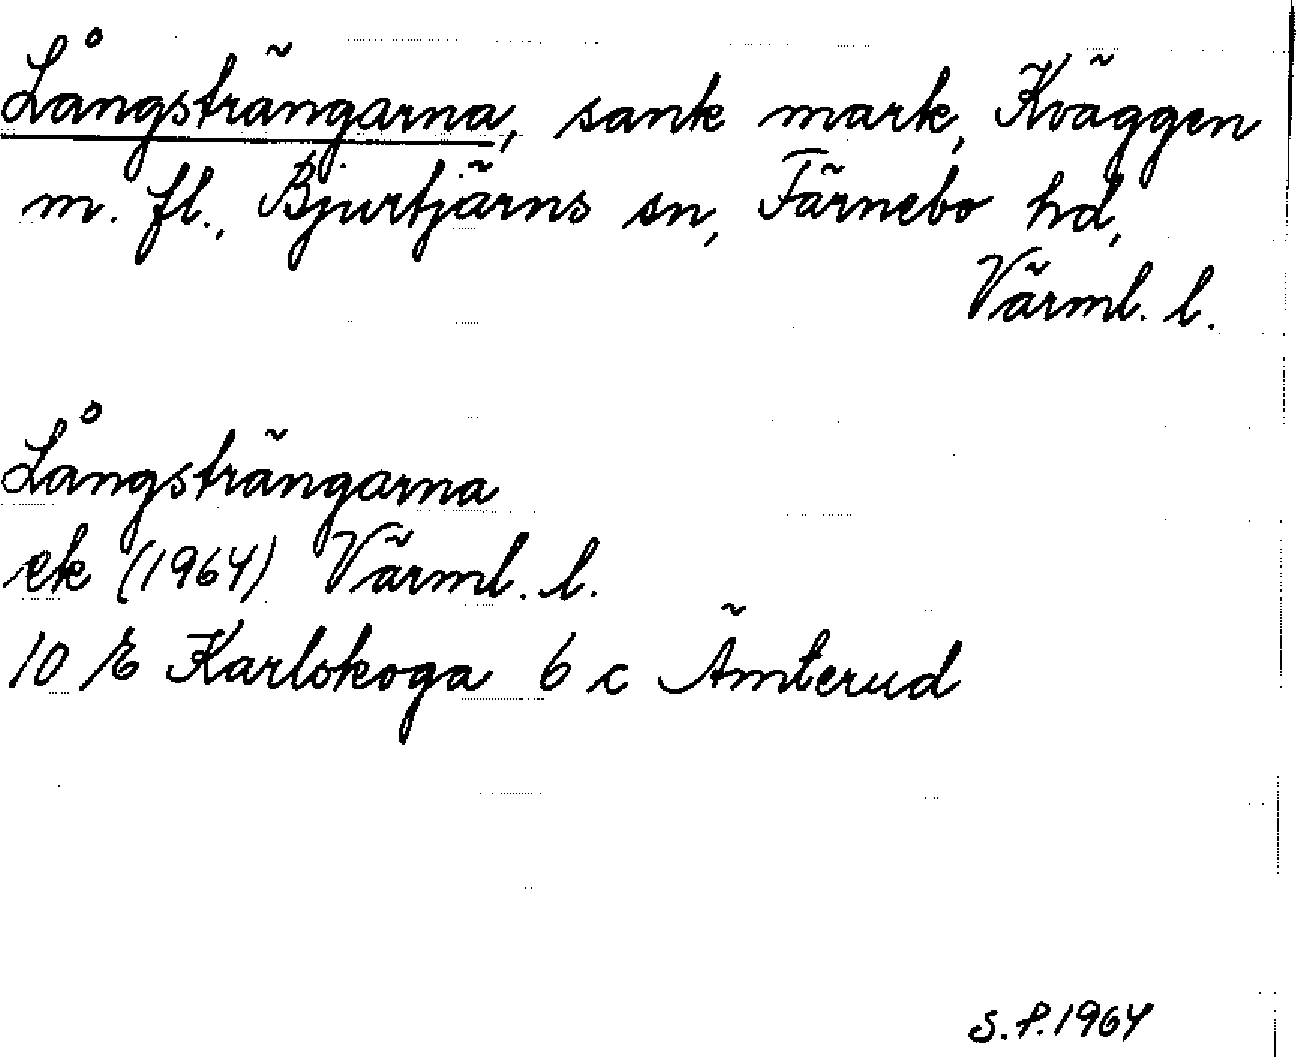 Långsträngarna, sank mark, Kväggen
m. fl., Bjurtjärns sn, Färnebo hd,
Värml. l.
Långsträngarna
ek (1964) Värml. l.
10 E Karlskoga 6 c Ämterud
S.P. 1964